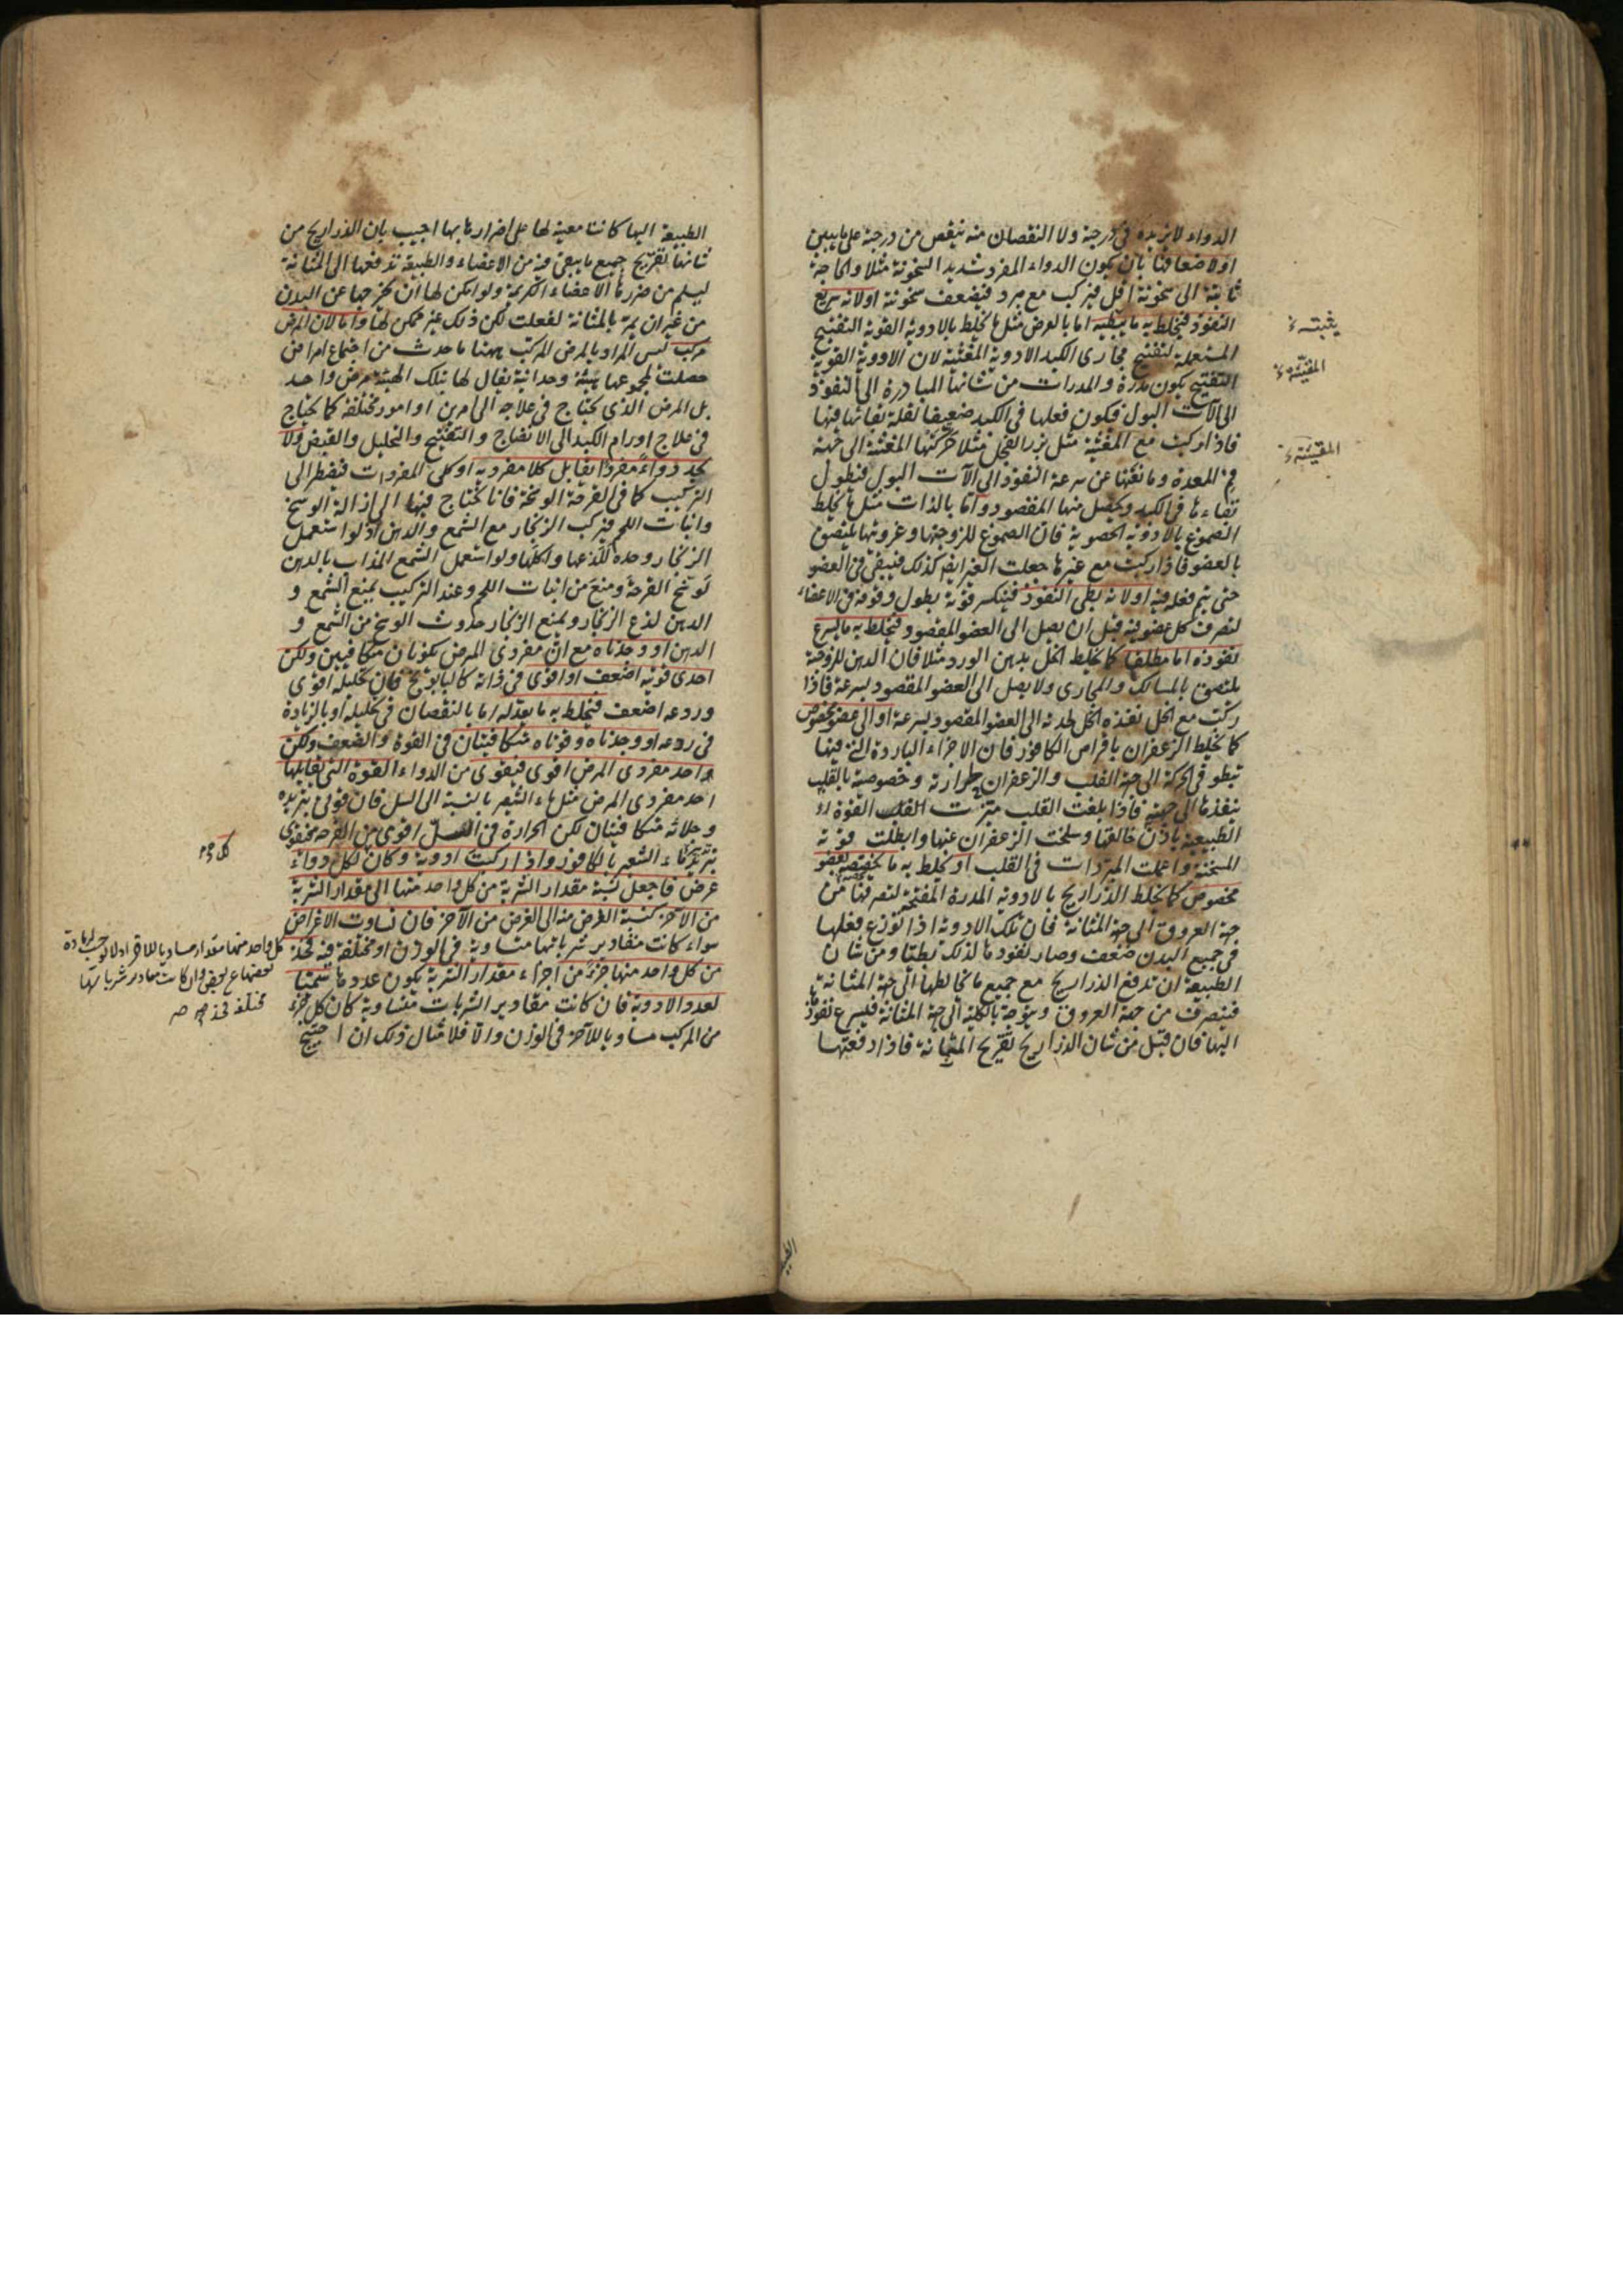 الدواء لا يزيده في درجة ولا النقصان منه ينقص من درجة على ما يبين
اولاضعافنا بان يكون الدواء المفرد شديد السخونة مثلا والحاجة
ثابتة الى سخونة اقل فيركب مع مبرد فيضعف سخونته اولانه سريع
النفوذ فيخلط به ما يثبطه اما بالعرض مثل ما يخلط بالادوية القوية التفتيح
المستعملة لتفتيح مجارى الكبد الادوية المغثية لان الادوية القوية
التفتيح يكون مدرة والمدرات من شانها المبادرة الى النفوذ
الى آلات البول فيكون فعلها فى الكبد ضعيفا لقلة بقائها فيها
فاذا ركبت مع المغثية مثل بزر الفجل مثلا حركتها المغثية الى جهة
فم المعدة ومانعتها عن سرعة النفوذ الى آلات البول فيطول
بقاءها فى الكبد ويحصل منها المقصود واما بالذات مثل ما يخلط
الصموغ بالادوية الحصوية فان الصموغ للزوجتها وغرويتها يلتصق
بالعضو فاذا ركبت مع غيرها جعلت الغير ايضا كذلك فيبقى فى العضو
حتى يتم فعله فيه اولانه بطى النفوذ فينكسر قوته بطول وقوفه فى الاعضاء
لتصرف كل عضو فيه قبل ان يصل الى العضو المقصود فيخلط به ما يسرع
نفوذه اما مطلقا كما يخلط الخل بدهن الورد مثلا فان الدهن للزوجته
يلتصق بالمسالك والمجارى ولا يصل الى العضو المقصود بسرعة فاذا
ركبت مع الخل نفذه الخل لحدته الى العضو المقصود بسرعة اوالى عضو مخصوص
كما يخلط الزعفران باقراص الكافور فان الاجزاء الباردة التى فيها
تبطو فى الحركة الى جهة القلب والزعفران لحرارته وخصوصيته بالقلب
ينفذها الى جهته فاذا بلغت القلب ميزت القلب القوة
الطبيعية باذن خالقها وسلخت الزعفران عنها وابطلت قوته
المسخنة واعملت المبردات فى القلب او يخلط به ما يخصصه بعضو
مخصوص كما يخلط الذراريح بالادوية المدرة المفتحة لتصرفها من
جهة العروق الى جهة المثانة فان تلك الادوية اذا توزع فعلها
فى جميع البدن ضعف وصار نفوذها لذلك بطئا ومن شان
الطبيعة ان تدفع الذراريح مع جميع ما يخالطها الى جهة المثانة
فينصرف من جهة العروق ويتوجه بالكلية الى جهة المثانة فيسرع نفوذها
اليها فان قيل من شان الذراريح تقريح المثانة فاذا دفعتها
يثبته
المقيئة
المقيئة
الطبيعة اليها كانت معينة لها على اضرارها بها اجيب بان الذراريح من
شانها تقريح جميع ما يبقى فيه من الاعضاء والطبيعة تدفعها الى المثانة
ليسلم من ضررها الاعضاء الكريمة ولو امكن لها ان يخرجها عن البدن
من غير ان يمر بالمثانة لفعلت لكن ذلك غير ممكن لها واما لان المرض
مركب ليس المراد بالمرض المركب ههنا ما حدث من اجتماع امراض
حصلت لمجموعها هيئة وحدانية يقال لها بتلك الهيئة مرض واحد
بل المرض الذى يحتاج فى علاجه الى امرين او امور مختلفة كما يحتاج
فى علاج اورام الكبد الى الانضاج والتفتيح والتحليل والقبض ولا
يجد دواء مفردا يقابل كلا مفرديه او كل المفردات فيضطر الى
التركيب كما فى القرحة الوسخة فانا نحتاج فيها الى ازالة الوسخ
وانبات اللحم فيركب الزنجار مع الشمع والدهن اذ لو استعمل
الزنجار وحده للذعها واكلها ولو استعمل الشمع المذاب بالدهن
لوسخ القرحة ومنع من انبات اللحم وعند التركيب يمنع الشمع و
الدهن لذع الزنجار ويمنع الزنجار حدوث الوسخ من الشمع و
الدهن او وجدناه مع ان مفردى المرض يكونان متكافيين ولكن
احدى قوتيه اضعف او اقوى فى ذاته كالبابونج فان تحليله اقوى
وردعه اضعف فيخلط به ما يعدله اما بالنقصان فى تحليله او بالزيادة
فى ردعه او وجدناه وقوتاه متكافيتان فى القوة والضعف ولكن
احد مفردى المرض اقوى فيقوى من الدواء القوة التى تقابلها
احد مفردى المرض مثل ماء الشعير بالنسبة الى السل فان قوتى تبريده
وجلائه متكافيتان لكن الحرارة فى السل اقوى من القرحة فيقوى
تبريد ماء الشعير بالكافور واذا ركبت ادوية وكان لكل دواء
غرض فاجعل نسبة مقدار الشربة من كل واحد منها الى مقدار الشربة
من الآخر كنسبة الغرض منه الى الغرض من الآخر فان تساوت الاغراض
سواء كانت مقادير شرباتها متساوية فى الوزن او مختلفة فيه فخذ
من كل واحد منها جزءا من اجزاء مقدار الشربة يكون عدده ما سميتا
لعدد الادوية فان كانت مقادير الشربات متساوية كان كل جزء
من المركب مساويا للآخر فى الوزن والا فلا مثال ذلك ان احتيج
كل واحد منها مقدار مساويا للاخر
بعضها على بعض وان كانت مقادير شرباتها
مختلفة فخذ